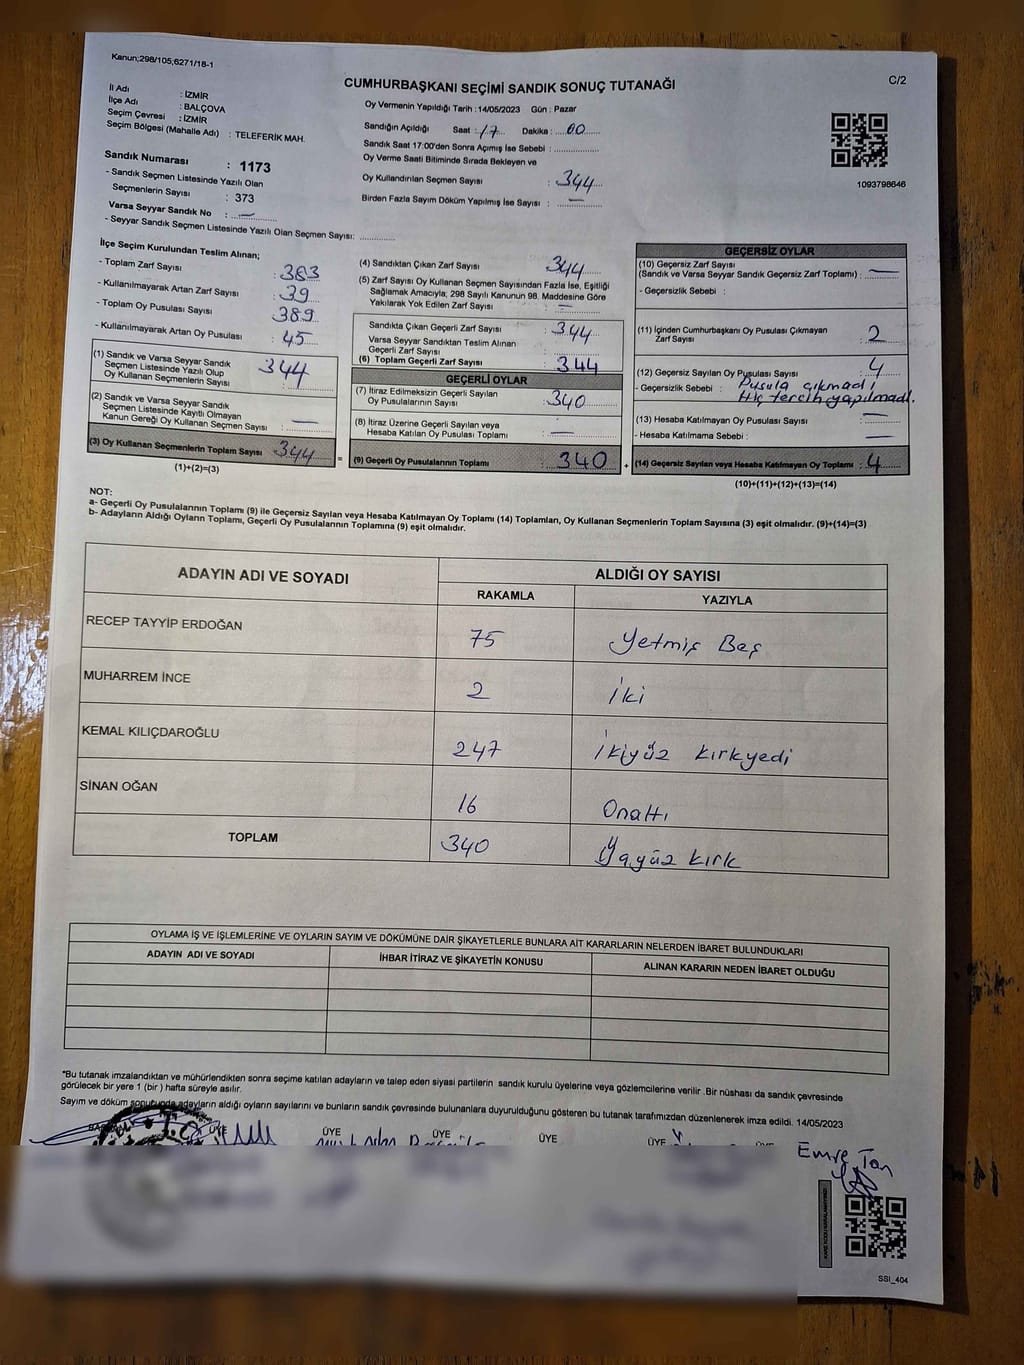 Kanun;298/105,6271/18-1
C/2
CUMHURBAŞKANI SEÇİMİ SANDIK SONUÇ TUTANAĞI
İl Adı : İZMİR
İlçe Adı : BALÇOVA
Seçim Çevresi : İZMİR
Seçim Bölgesi (Mahalle Adı) : TELEFERİK MAH.
Sandık Numarası : 1173
- Sandık Seçmen Listesinde Yazılı Olan
Seçmenlerin Sayısı : 373
Varsa Seyyar Sandık No : —
- Seyyar Sandık Seçmen Listesinde Yazılı Olan Seçmen Sayısı: ............
Oy Vermenin Yapıldığı Tarih : 14/05/2023 Gün : Pazar
Sandığın Açıldığı Saat : 17 Dakika : 00
Sandık Saat 17:00'den Sonra Açımış İse Sebebi : ...............
Oy Verme Saati Bitiminde Sırada Bekleyen ve
Oy Kullandırılan Seçmen Sayısı : 344
Birden Fazla Sayım Döküm Yapılmış İse Sayısı : —
1093798646
İlçe Seçim Kurulundan Teslim Alınan;
- Toplam Zarf Sayısı : 383
- Kullanılmayarak Artan Zarf Sayısı : 39
- Toplam Oy Pusulası Sayısı : 389
- Kullanılmayarak Artan Oy Pusulası : 45
(1) Sandık ve Varsa Seyyar Sandık
Seçmen Listesinde Yazılı Olup
Oy Kullanan Seçmenlerin Sayısı : 344
(2) Sandık ve Varsa Seyyar Sandık
Seçmen Listesinde Kayıtlı Olmayan
Kanun Gereği Oy Kullanan Seçmen Sayısı : —
(3) Oy Kullanan Seçmenlerin Toplam Sayısı : 344
(1)+(2)=(3)
(4) Sandıktan Çıkan Zarf Sayısı : 344
(5) Zarf Sayısı Oy Kullanan Seçmen Sayısından Fazla İse, Eşitliği
Sağlamak Amacıyla, 298 Sayılı Kanunun 98. Maddesine Göre
Yakılarak Yok Edilen Zarf Sayısı : —
Sandıkta Çıkan Geçerli Zarf Sayısı : 344
Varsa Seyyar Sandıktan Teslim Alınan
Geçerli Zarf Sayısı :
(6) Toplam Geçerli Zarf Sayısı : 344
GEÇERLİ OYLAR
(7) İtiraz Edilmeksizin Geçerli Sayılan
Oy Pusulalarının Sayısı : 340
(8) İtiraz Üzerine Geçerli Sayılan veya
Hesaba Katılan Oy Pusulası Toplamı : —
= (9) Geçerli Oy Pusulalarının Toplamı : 340
GEÇERSİZ OYLAR
(10) Geçersiz Zarf Sayısı
(Sandık ve Varsa Seyyar Sandık Geçersiz Zarf Toplamı) : —
- Geçersizlik Sebebi :
(11) İçinden Cumhurbaşkanı Oy Pusulası Çıkmayan
Zarf Sayısı : 2
(12) Geçersiz Sayılan Oy Pusulası Sayısı : 4
- Geçersizlik Sebebi : Pusula çıkmadı,
Hiç tercih yapılmadı.
(13) Hesaba Katılmayan Oy Pusulası Sayısı : —
- Hesaba Katılmama Sebebi : —
+ (14) Geçersiz Sayılan veya Hesaba Katılmayan Oy Toplamı : 4
(10)+(11)+(12)+(13)=(14)
NOT:
a- Geçerli Oy Pusulalarının Toplamı (9) ile Geçersiz Sayılan veya Hesaba Katılmayan Oy Toplamı (14) Toplamları, Oy Kullanan Seçmenlerin Toplam Sayısına (3) eşit olmalıdır. (9)+(14)=(3)
b- Adayların Aldığı Oyların Toplamı, Geçerli Oy Pusulalarının Toplamına (9) eşit olmalıdır.
ADAYIN ADI VE SOYADI ALDIĞI OY SAYISI
RAKAMLA YAZIYLA
RECEP TAYYİP ERDOĞAN 75 Yetmiş Beş
MUHARREM İNCE 2 İki
KEMAL KILIÇDAROĞLU 247 İkiyüz kırkyedi
SİNAN OĞAN 16 Onaltı
TOPLAM 340 kırk
OYLAMA İŞ VE İŞLEMLERİNE VE OYLARIN SAYIM VE DÖKÜMÜNE DAİR ŞİKAYETLERLE BUNLARA AİT KARARLARIN NELERDEN İBARET BULUNDUKLARI
ADAYIN ADI VE SOYADI İHBAR İTİRAZ VE ŞİKAYETİN KONUSU ALINAN KARARIN NEDEN İBARET OLDUĞU
*Bu tutanak imzalandıktan ve mühürlendikten sonra seçime katılan adayların ve talep eden siyasi partilerin sandık kurulu üyelerine veya gözlemcilerine verilir .Bir nüshası da sandık çevresinde
görülecek bir yere 1 (bir ) hafta süreyle asılır.
Sayım ve döküm sonucunda adayların aldığı oyların sayılarını ve bunların sandık çevresinde bulunanlara duyurulduğunu gösteren bu tutanak tarafımızdan düzenlenerek imza edildi. 14/05/2023
ÜYE ÜYE ÜYE ÜYE ÜYE
Emre Tan
SSI_404